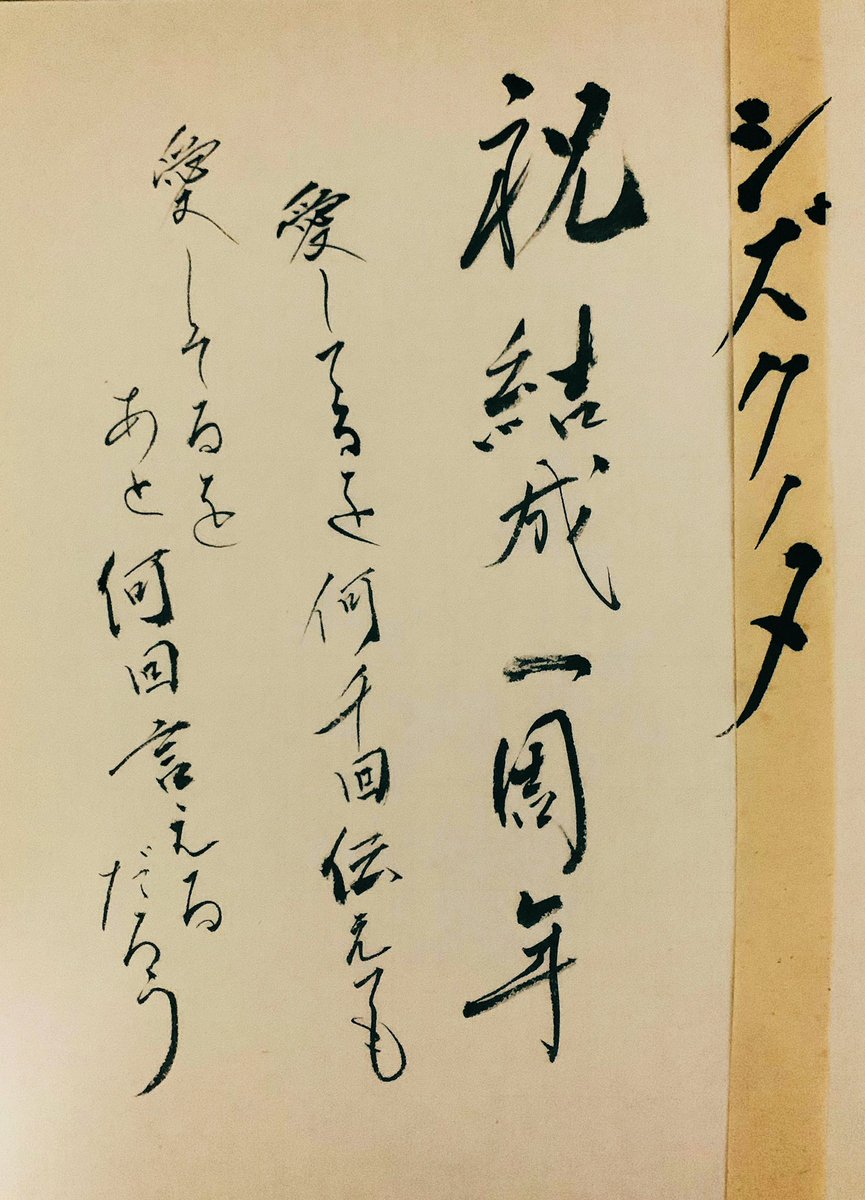 シズクノメ
祝結成一周年
愛してるを何千回伝えても
愛してるを
あと何回言える
だろう